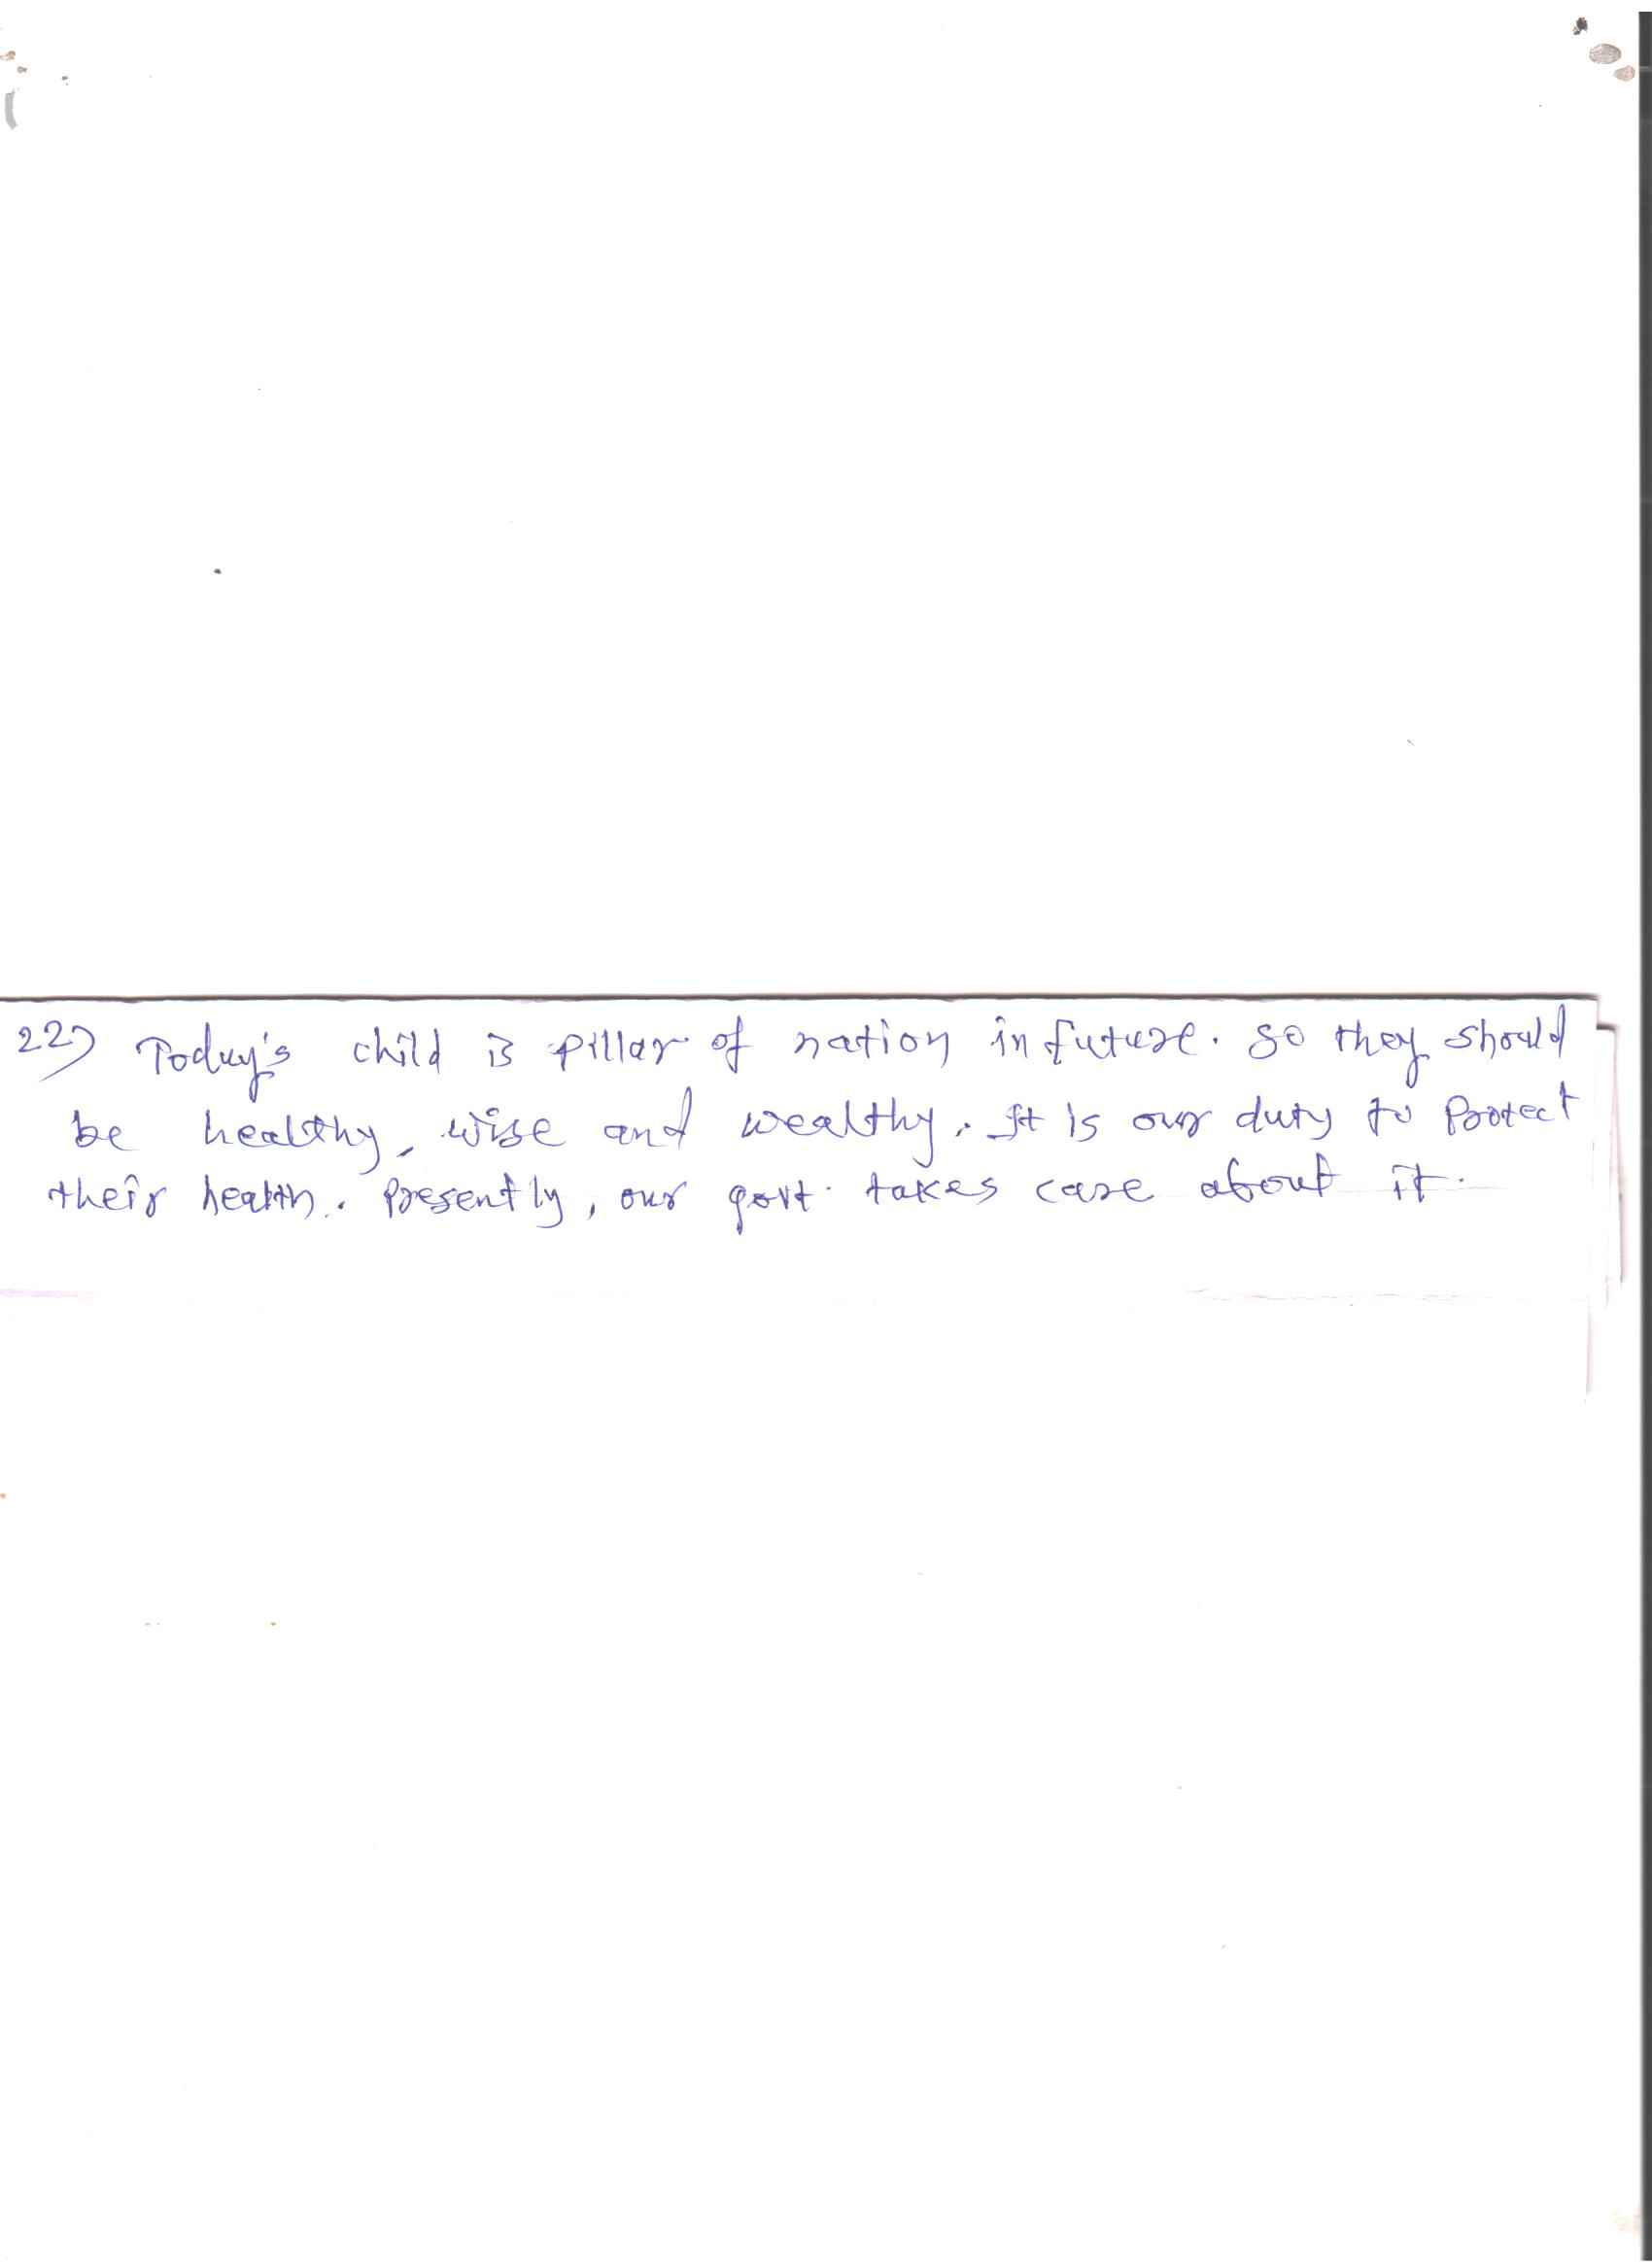 22) Today's child is pillar of nation in future. So they should
be healthy, wise and wealthy. It is our duty to Protect
their health. Presently, our govt. takes care about it.